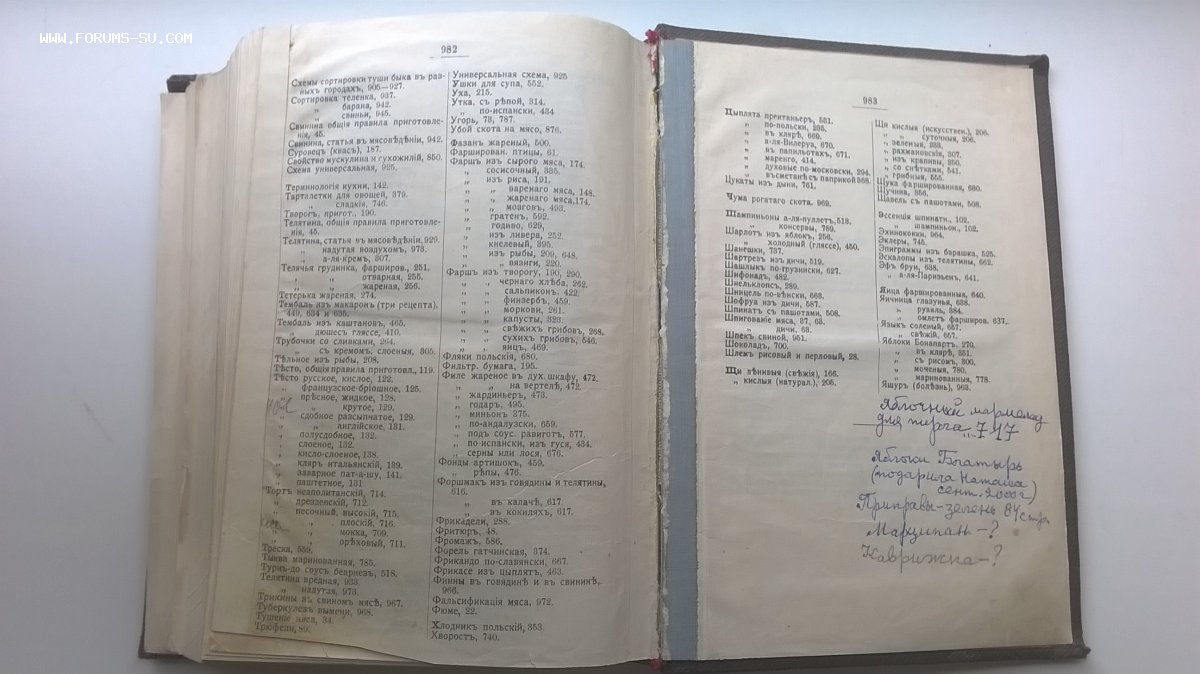 WWW.FORUMS-SU.COM
982
Схемы сортировки туши быка въ раз-
ныхъ городахъ, 905—927.
Сортировка теленка, 937.
„ барана, 942.
„ свиньи, 945.
Свинина общія правила приготовле-
нія, 45.
Свинина, статья въ мясовѣдѣніи, 942.
Суровецъ (квасъ), 187.
Свойство мускулина и сухожилій, 850.
Схема универсальная, 925.
Терминологія кухни, 142.
Тарталетки для овощей, 379.
„ сладкія, 746.
Творогъ, пригот., 190.
Телятина, общія правила приготовле-
нія, 45.
Телятина, статья въ мясовѣдѣніи, 929.
„ надутая воздухомъ, 973.
„ а-ля-кремъ, 307.
Телячья грудинка, фарширов., 251.
„ „ отварная, 255.
„ „ жареная, 256.
Тетерька жареная, 274.
Тембаль изъ макаронъ (три рецепта),
449, 634 и 635.
Тембаль изъ каштановъ, 465.
„ дюшесъ гляссе, 410.
Трубочки со сливками, 294.
„ съ кремомъ, слоеныя, 305.
Тѣльное изъ рыбы, 208.
Тѣсто, общія правила приготовл., 119.
Тѣсто русское, кислое, 122.
„ французское-бріошное, 125.
„ прѣсное, жидкое, 128.
„ „ крутое, 129.
„ сдобное разсыпчатое, 129.
„ „ англійское, 131.
„ полусдобное, 132.
„ слоеное, 132.
„ кисло-слоеное, 138.
„ кляръ итальянскій, 139.
„ заварное пат-а-шу, 141.
„ паштетное, 131.
Тортъ неаполитанскій, 714.
„ дрезденскій, 712.
„ песочный, высокій, 715.
„ „ плоскій, 716.
„ „ мокка, 709.
„ „ орѣховый, 711.
Треска, 559.
Тыква маринованная, 785.
Турнъ-до соусъ беарнезъ, 518.
Телятина вредная, 933.
„ надутая, 973.
Трихины въ свиномъ мясѣ, 967.
Туберкулезъ вымени, 968.
Тушеніе мяса, 34.
Трюфели, 89.
Универсальная схема, 925
Ушки для супа, 552.
Уха, 215.
Утка, съ рѣпой, 314.
„ по-испански, 434
Угорь, 73, 787.
Убой скота на мясо, 876.
Фазанъ жареный, 500.
Фарширован. птицы, 61.
Фаршъ изъ сырого мяса, 174.
„ сосисочный, 335.
„ изъ риса, 191.
„ „ варенаго мяса, 148.
„ „ жаренаго мяса, 174.
„ „ мозговъ, 493.
„ гратенъ, 592.
„ годиво, 629.
„ изъ ливера, 252.
„ кнелевый, 395.
„ изъ рыбы, 209, 648.
„ „ вязиги, 220.
Фаршъ изъ творогу, 190, 290.
„ „ чернаго хлѣба, 262.
„ „ сальпиконъ, 422.
„ „ финзербъ, 459.
„ „ моркови, 261.
„ „ капусты, 323.
„ „ свѣжихъ грибовъ, 268.
„ „ сухихъ грибовъ, 546.
„ „ яицъ, 469.
Фляки польскія, 680.
Фильтр. бумага, 195.
Филе жареное въ дух. шкафу, 472.
„ „ на вертелѣ, 472.
„ жардиньеръ, 473.
„ годаръ, 495.
„ миньонъ, 375.
„ по-андалузски, 659.
„ подъ соус. равиготъ, 577.
„ по-испански, изъ гуся, 434.
„ серны или лося, 676.
Фонды артишокъ, 459.
„ рѣпы, 476.
Форшмакъ изъ говядины и телятины,
616.
„ въ калачѣ, 617.
„ въ кокиляхъ, 617.
Фрикадели, 288.
Фритюръ, 48.
Фромажъ, 586.
Форель гатчинская, 374.
Фрикандо по-славянски, 667.
Фрикасе изъ цыплятъ, 463.
Финны въ говядинѣ и въ свининѣ,
966.
Фальсификація мяса, 972.
Фюме, 22.
Хлодникъ польскій, 353.
Хворостъ, 740.
983
Цыплята прентаньеръ, 531.
„ по-польски, 295.
„ въ клярѣ, 669.
„ а-ля-Вилеруа, 670.
„ въ папильотахъ, 671.
„ маренго, 414.
„ духовые по-московски, 294.
„ въ сметанѣ съ паприкой 368.
Цукаты изъ дыни, 761.
Чума рогатаго скота, 969.
Шампиньоны а-ля-пуллетъ, 518.
„ консервы, 789.
Шарлотъ изъ яблокъ, 256.
„ холодный (гляссе), 450.
Шанешки, 737.
Шартрезъ изъ дичи, 519.
Шашлыкъ по-грузински, 627.
Шифонадъ, 482.
Шнельклопсъ, 289.
Шницель по-вѣнски, 663.
Шофруа изъ дичи, 587.
Шпинатъ съ пашотами, 508.
Шпигованіе мяса, 37, 63.
„ дичи, 63.
Шпекъ свиной, 951.
Шоколадъ, 700.
Шлемъ рисовый и перловый, 28.
Щи лѣнивыя (свѣжія), 166.
„ кислыя (натурал.), 205.
Щи кислыя (искусствен.), 206.
„ „ суточныя, 206.
„ зеленыя, 238.
„ рахмановскія, 307.
„ изъ крапивы, 250.
„ со снѣтками, 541.
„ грибныя, 555.
Щука фаршированная, 680.
Щучина, 356.
Щавель съ пашотами, 508.
Эссенція шпинатн., 102.
„ шампиньон., 102.
Эхинококки, 964.
Эклеры, 745.
Эпиграммы изъ барашка, 525.
Эскалопы изъ телятины, 662.
Эфъ бруи, 638.
„ а-ля-Паризьенъ, 641.
Яица фаршированныя, 640.
Яичница глазунья, 638.
„ руаяль, 384.
„ омлетъ фарширов. 637.
Языкъ соленый, 657.
„ свѣжій, 657.
Яблоки Бонапартъ, 270.
„ въ клярѣ, 351.
„ съ рисомъ, 300.
„ моченыя, 780.
„ маринованныя, 778.
Ящуръ (болѣзнь), 963.
Яблочный мармелад
для пирога 747
Яблоки Богатырь
(подарила Наташа
сент. 2000г)
Приправы-зелень 84 стр.
Марципан - ?
Каврижка - ?